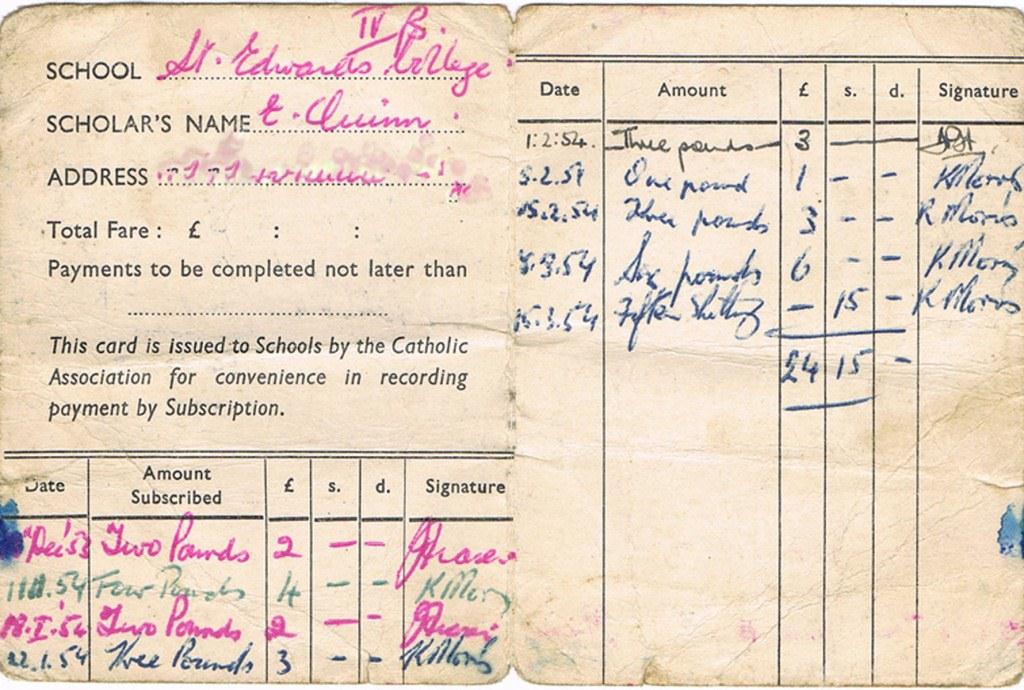 IV B.
SCHOOL St. Edwards College
SCHOLAR'S NAME E. Quinn
ADDRESS
Total Fare : £ : :
Payments to be completed not later than
This card is issued to Schools by the Catholic
Association for convenience in recording
payment by Subscription.
Date Amount Subscribed £ s. d. Signature
Dec '53 Two Pounds 2 - -
.54 Four Pounds 4 - - K Morris
18.I.54 Two Pounds 2 - -
22.1.54 Three Pounds 3 - - K Morris
Date Amount £ s. d. Signature
1:2:54. Three pounds 3
.2.54 One pound 1 - - K Morris
15.2.54 Three pounds 3 - - K Morris
.3.54 Six pounds 6 - - K Morris
15.3.54 Fifteen Shillings - 15 - K Morris
24 15 -